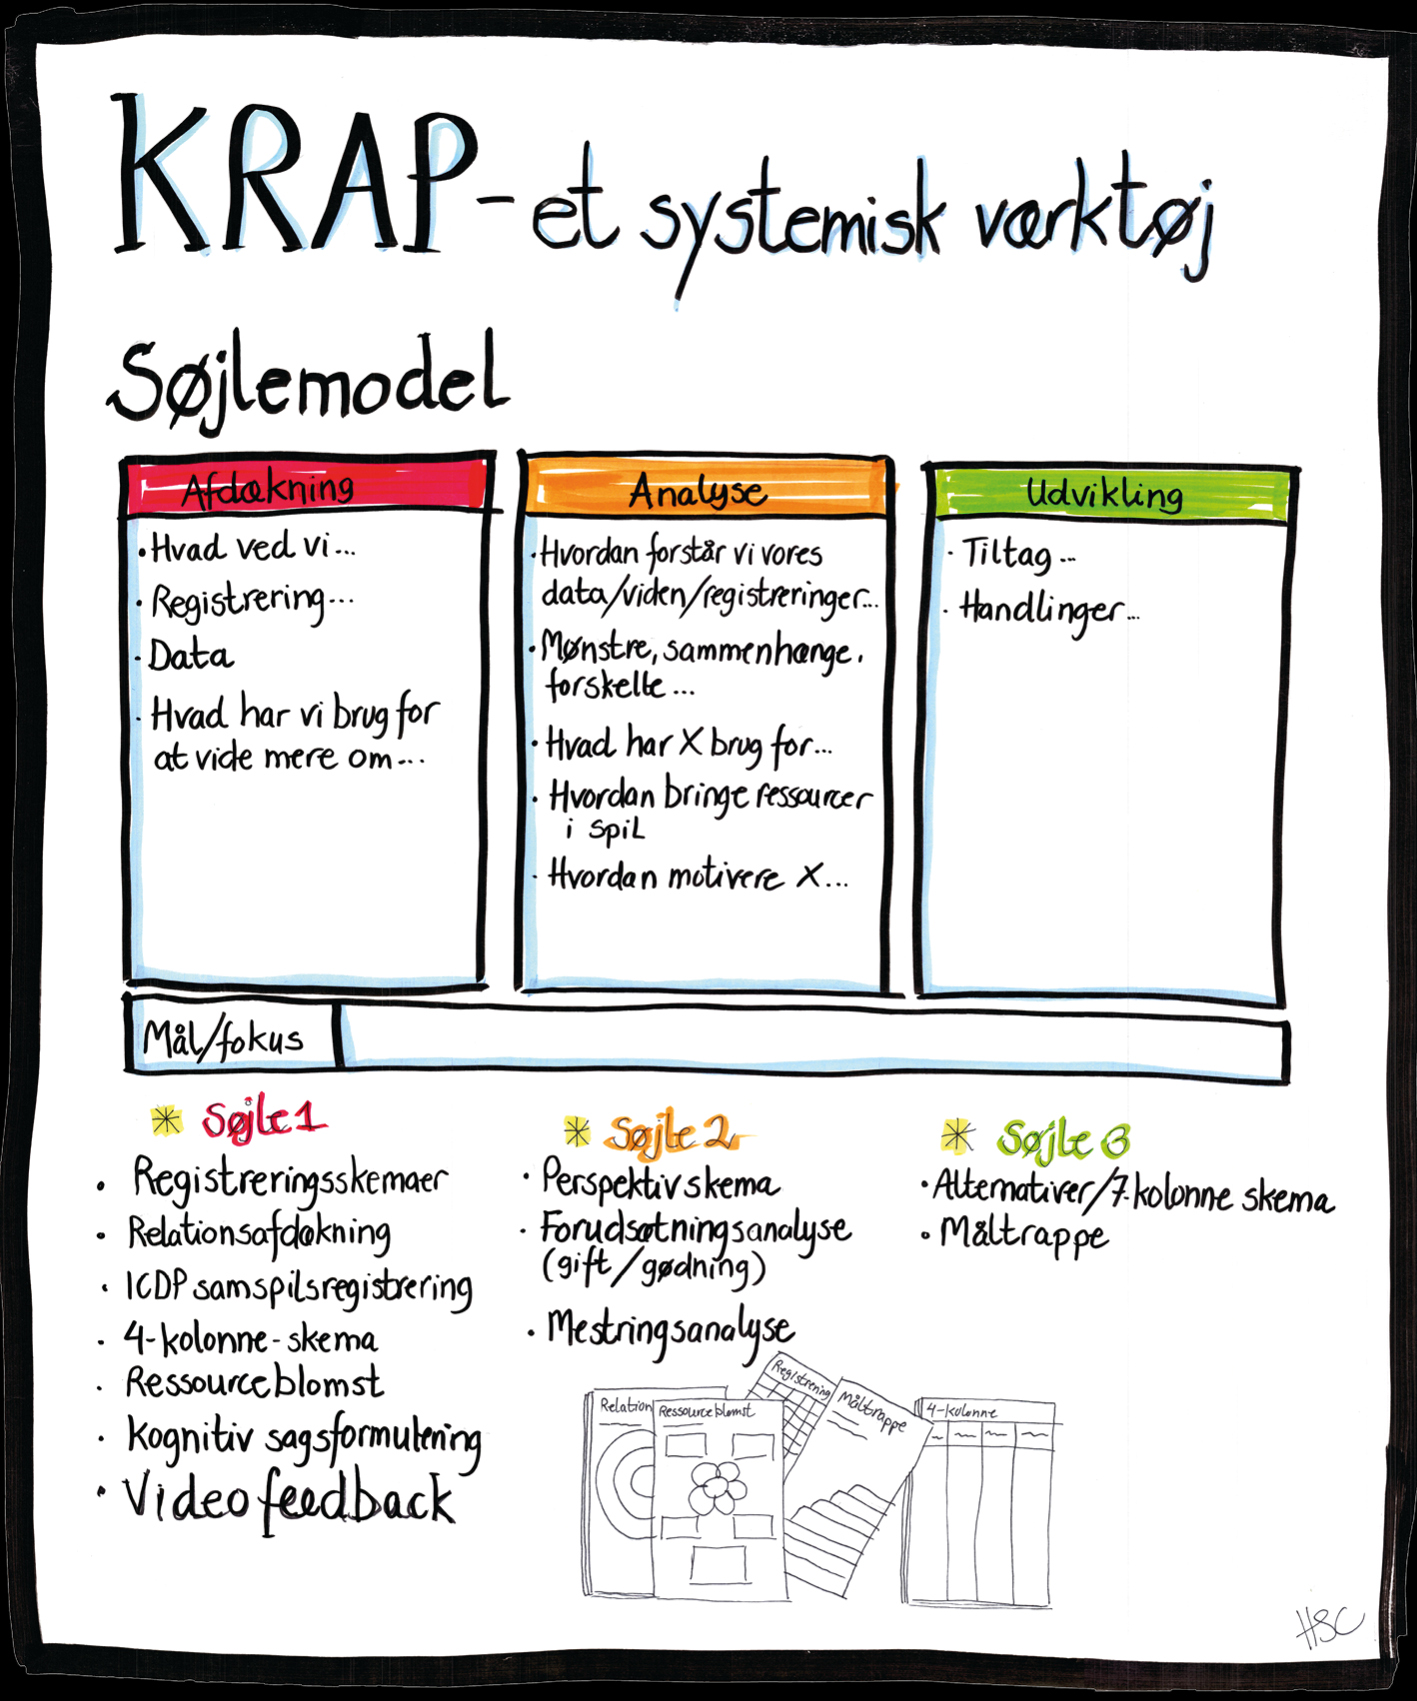 KRAP - et systemisk værktøj
Søjlemodel
Afdækning
• Hvad ved vi...
• Registrering...
• Data
• Hvad har vi brug for
at vide mere om...
Analyse
• Hvordan forstår vi vores
data/viden/registreringer...
• Mønstre, sammenhænge,
forskelle...
• Hvad har X brug for...
• Hvordan bringe ressourcer
i spil
• Hvordan motivere X...
Udvikling
• Tiltag...
• Handlinger...
Mål/fokus
Søjle 1
• Registreringsskemaer
• Relationsafdækning
• ICDP samspilsregistrering
• 4-kolonne-skema
• Ressourceblomst
• Kognitiv sagsformulering
• Video feedback
Søjle 2
• Perspektivskema
• Forudsætningsanalyse
(gift/gødning)
• Mestringsanalyse
Søjle 3
• Alternativer/7-kolonne skema
• Måltrappe
Relation
Ressourceblomst
Registrering
Måltrappe
4-kolonne
HSC